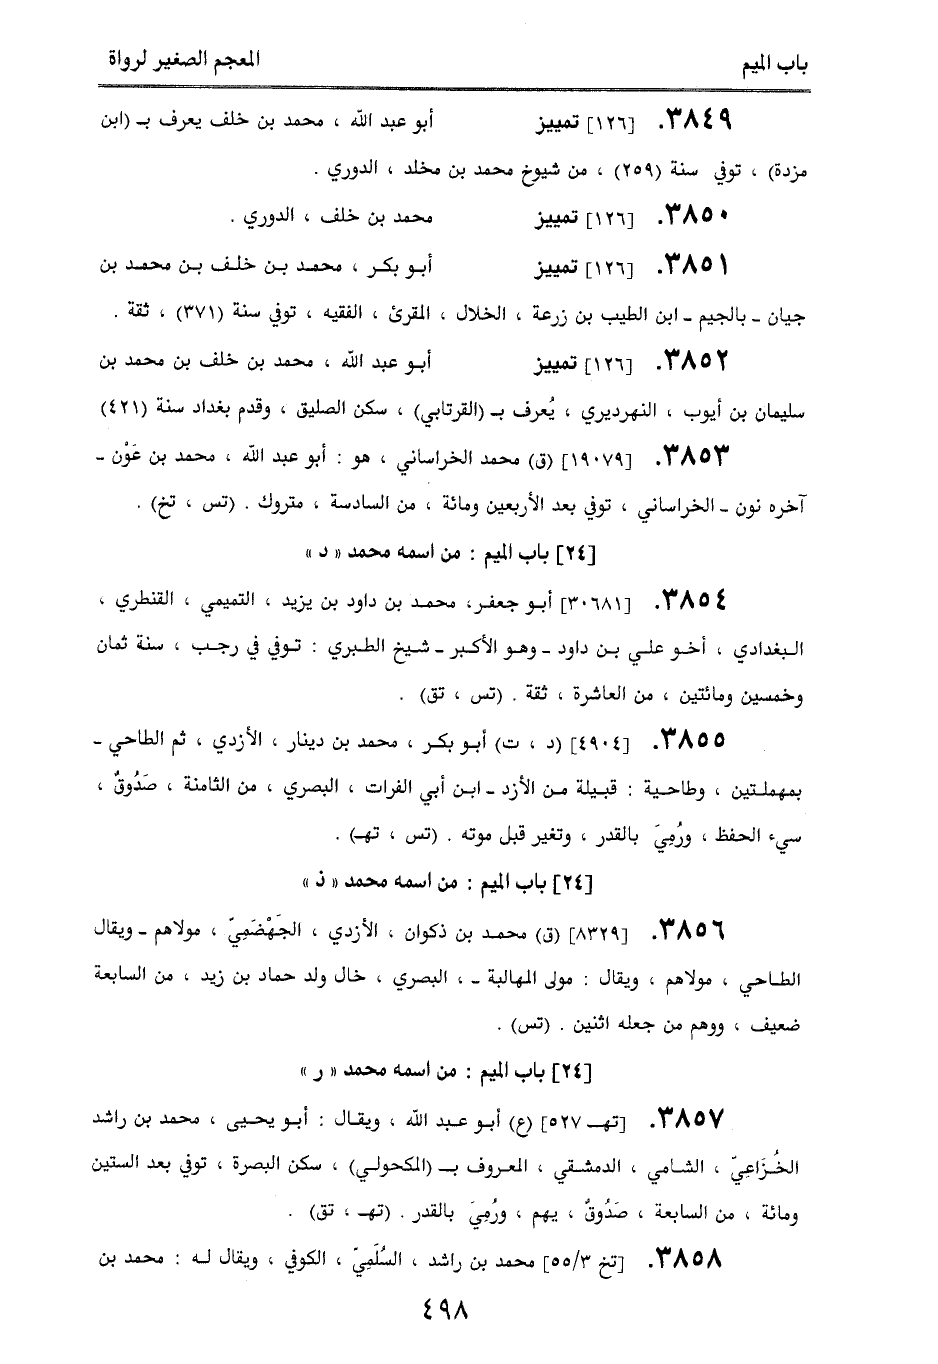 باب الميم
المعجم الصغير لرواة
٣٨٤٩. [١٢٦] تمييز أبو عبد الله ، محمد بن خلف يعرف بـ (ابن
مزدة) ، توفي سنة (٢٥٩) ، من شيوخ محمد بن مخلد ، الدوري .
٣٨٥٠. [١٢٦] تمييز محمد بن خلف ، الدوري .
٣٨٥١. [١٢٦] تمييز أبو بكر ، محمد بن خلف بن محمد بن
جيان ـ بالجيم ـ ابن الطيب بن زرعة ، الخلال ، المقرئ ، الفقيه ، توفي سنة (٣٧١) ، ثقة .
٣٨٥٢. [١٢٦] تمييز أبو عبد الله ، محمد بن خلف بن محمد بن
سليمان بن أيوب ، النهرديري ، يُعرف بـ (القرتابي) ، سكن الصليق ، وقدم بغداد سنة (٤٢١)
٣٨٥٣. [١٩٠٧٩] (ق) محمد الخراساني ، هو : أبو عبد الله ، محمد بن عَوْن ـ
آخره نون ـ الخراساني ، توفي بعد الأربعين ومائة ، من السادسة ، متروك . (تس ، تخ) .
[٢٤] باب الميم : من اسمه محمد « د »
٣٨٥٤. [٣٠٦٨١] أبو جعفر، محمد بن داود بن يزيد ، التميمي ، القنطري ،
البغدادي ، أخو علي بن داود ـ وهو الأكبر ـ شيخ الطبري : توفي في رجب ، سنة ثمان
وخمسين ومائتين ، من العاشرة ، ثقة . (تس ، تق) .
٣٨٥٥. [٤٩٠٤] (د ، ت) أبو بكر ، محمد بن دينار ، الأزدي ، ثم الطاحي ـ
بمهملتين ، وطاحية : قبيلة من الأزد ـ ابن أبي الفرات ، البصري ، من الثامنة ، صَدُوقٌ ،
سيء الحفظ ، ورُمِيَ بالقدر ، وتغير قبل موته . (تس ، تهـ) .
[٢٤] باب الميم : من اسمه محمد « ذ »
٣٨٥٦. [٨٣٢٩] (ق) محمد بن ذكوان ، الأزدي ، الجَهْضَمِيّ ، مولاهم ـ ويقال
الطاحي ، مولاهم ، ويقال : مولى المهالبة ـ ، البصري ، خال ولد حماد بن زيد ، من السابعة
ضعيف ، ووهم من جعله اثنين . (تس) .
[٢٤] باب الميم : من اسمه محمد « ر »
٣٨٥٧. [تهـ ٥٢٧] (ع) أبو عبد الله ، ويقال : أبو يحيى ، محمد بن راشد
الخُزَاعِيّ ، الشامي ، الدمشقي ، المعروف بـ (المكحولي) ، سكن البصرة ، توفي بعد الستين
ومائة ، من السابعة ، صَدُوقٌ ، يهم ، ورُمِيَ بالقدر . (تهـ ، تق) .
٣٨٥٨. [تخ ٥٥/٣] محمد بن راشد ، السُّلَمِيّ ، الكوفي ، ويقال له : محمد بن
٤٩٨